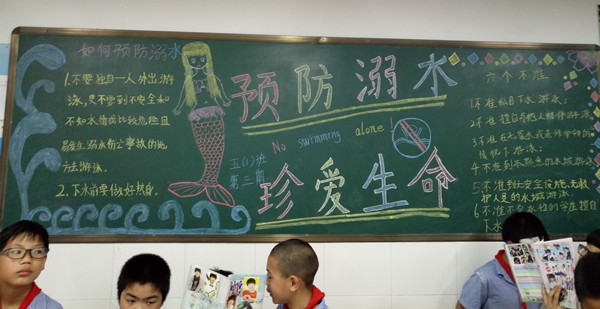 如何预防溺水
1.不要独自一人外出游
泳,更不要到不安全和
不知水情或比较危险且
易发生溺水伤亡事故的地
方去游泳。
2.下水前要做好热身。
预防溺水
No swimming alone!
五(1)班
第三期
珍爱生命
六个不准
1.不准私自下水游泳;
2.不准擅自与他人结伴游泳
4.不准到不熟悉的水域游泳
5.不准到无安全设施、无救
护人员的水域游泳
6.不准不会水性的学生擅自
下水